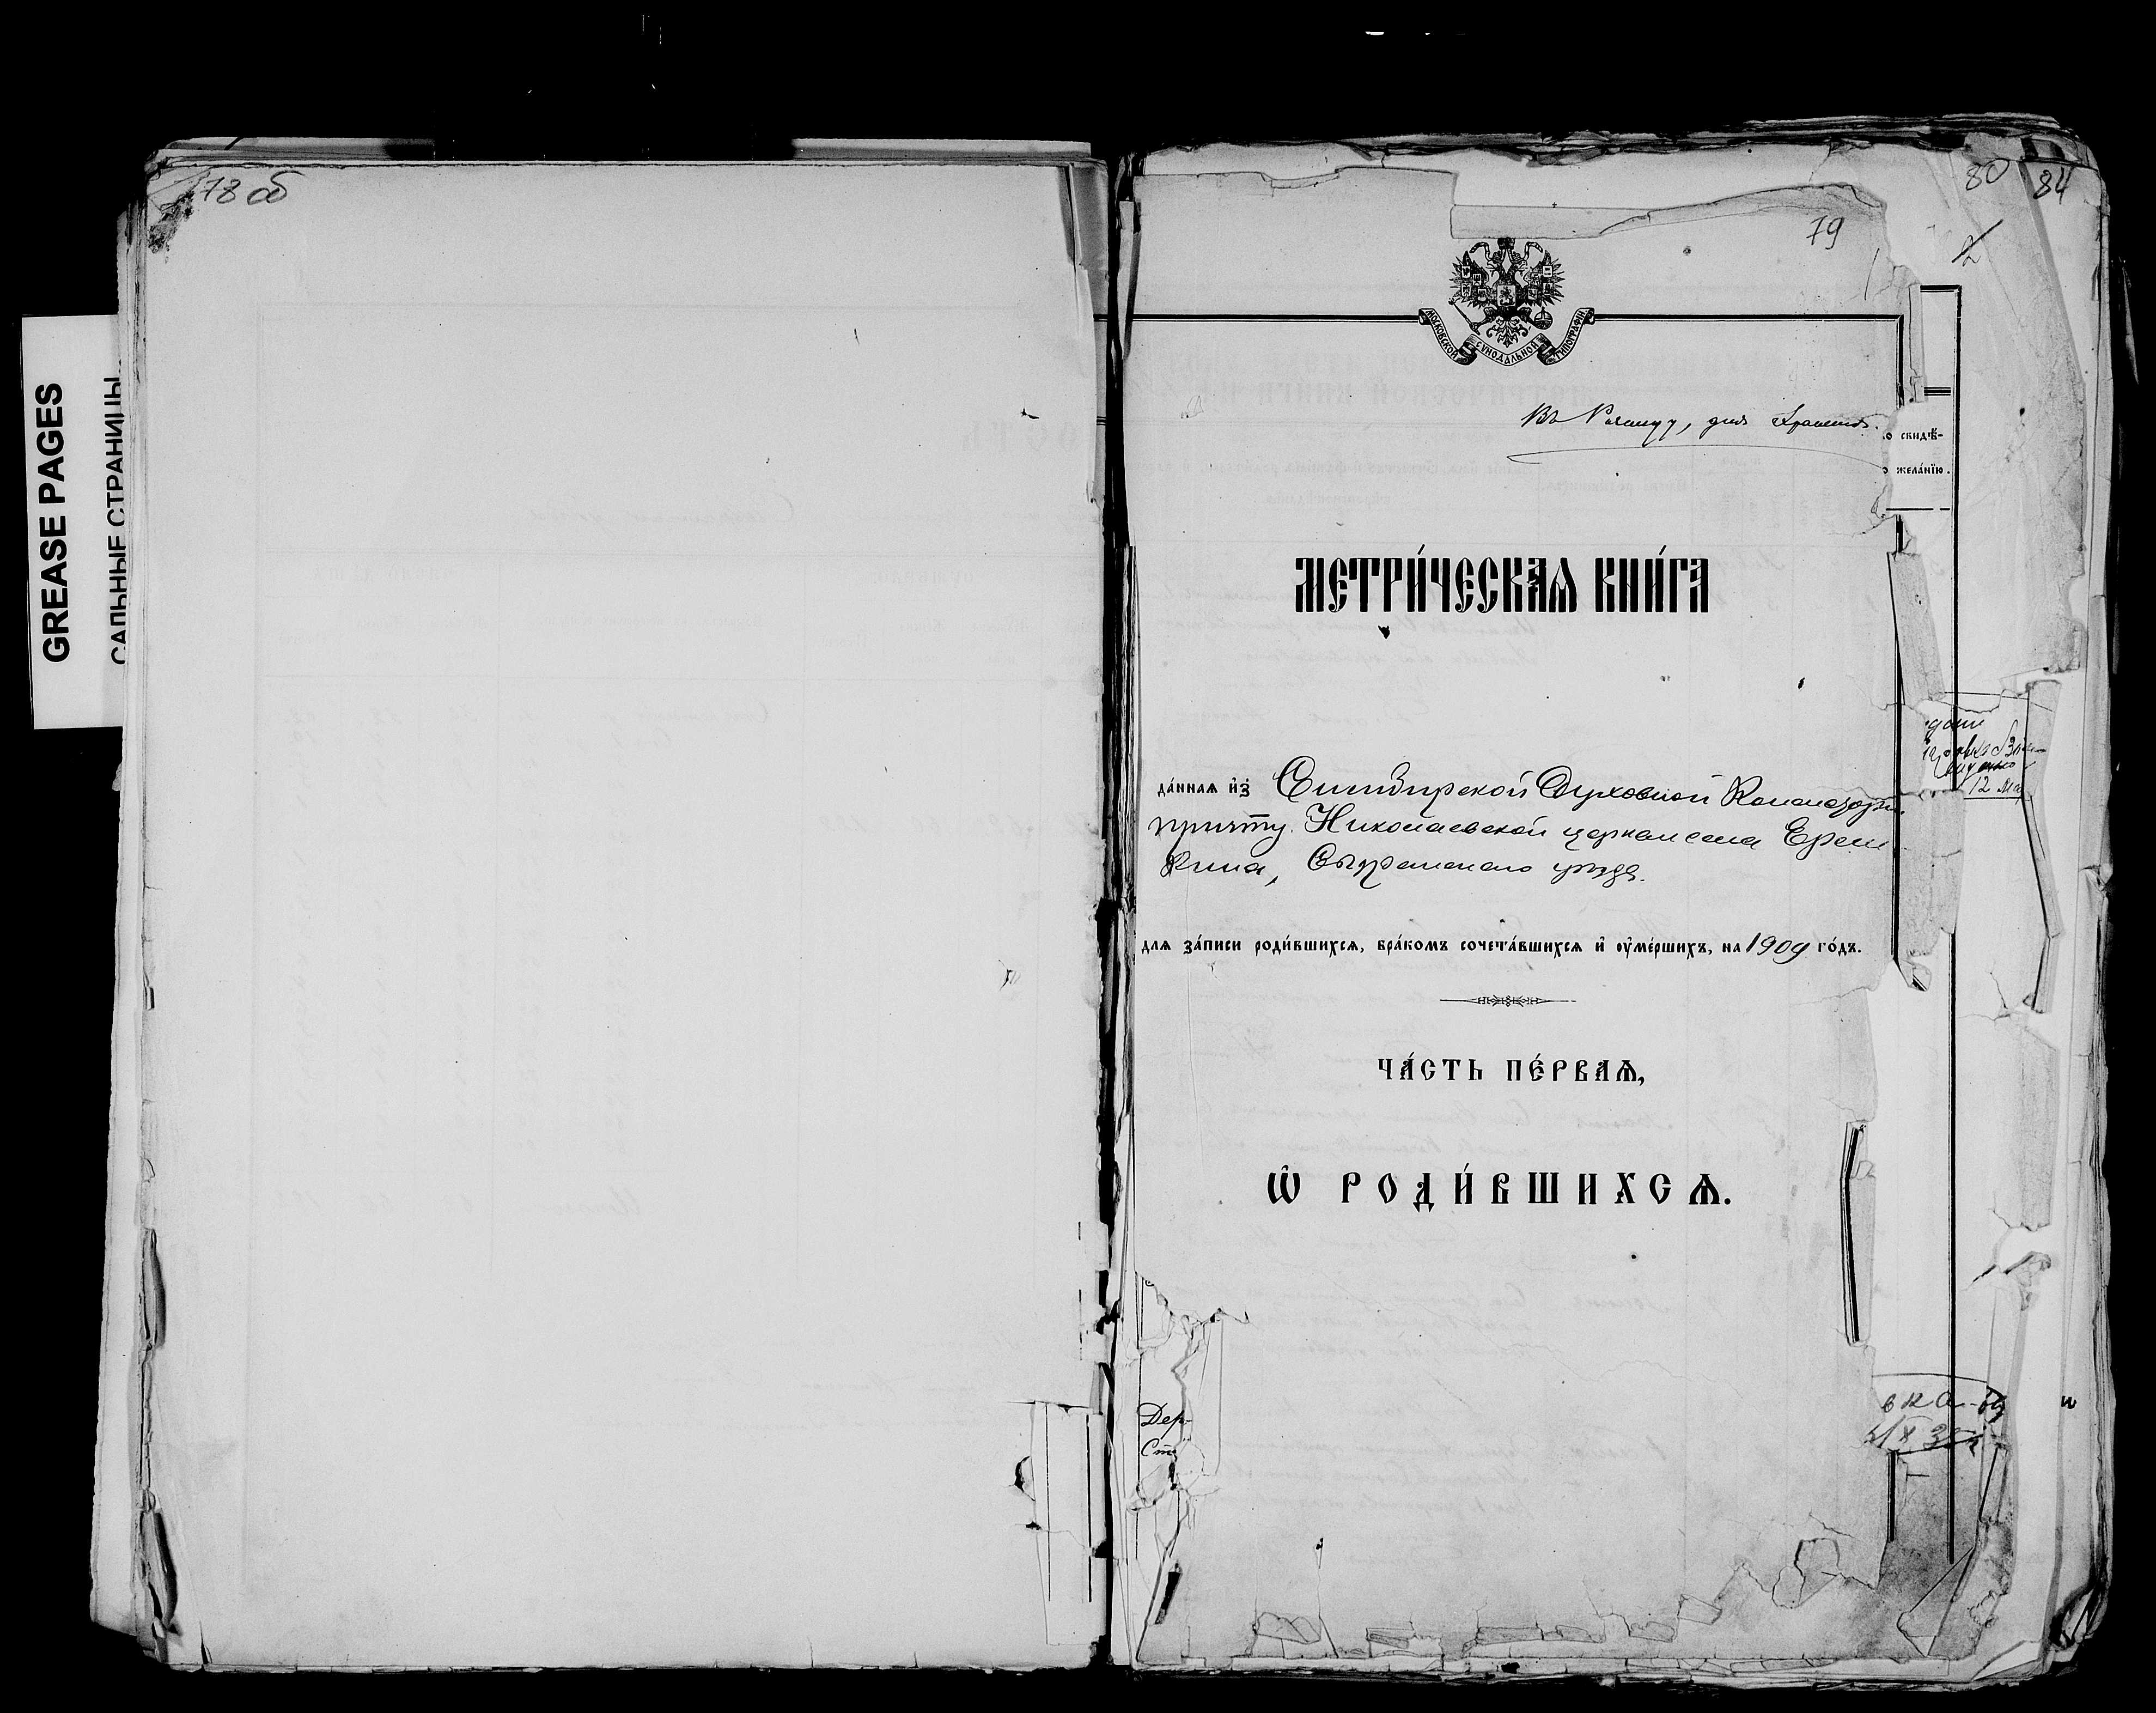 GREASE PAGES
САЛЬНЫЕ СТРАНИЦЫ
78 об
80
84
79
2
МОСКОВСКОЙ СѴНОДАЛЬНОЙ ТИПОГРАФІИ
Въ
для
о свидѣ-
о жела́нїю.
МЕТРИ́ЧЕСКАѦ КНИ́ГА
да́ннаѧ и҆з̾ Симбирской Духовной Консисторіи
причту Николаевской церкви села Ерем
кина, Сызранскаго уѣзда.
12
для за́писи роди́вшихсѧ, бра́комъ сочета́вшихсѧ и҆ ᲂу҆ме́ршихъ, на 1909 го́дъ.
ЧА́СТЬ ПЕ́РВАѦ,
Ѽ РОДИ́ВШИХСѦ.
Дер-
Ст